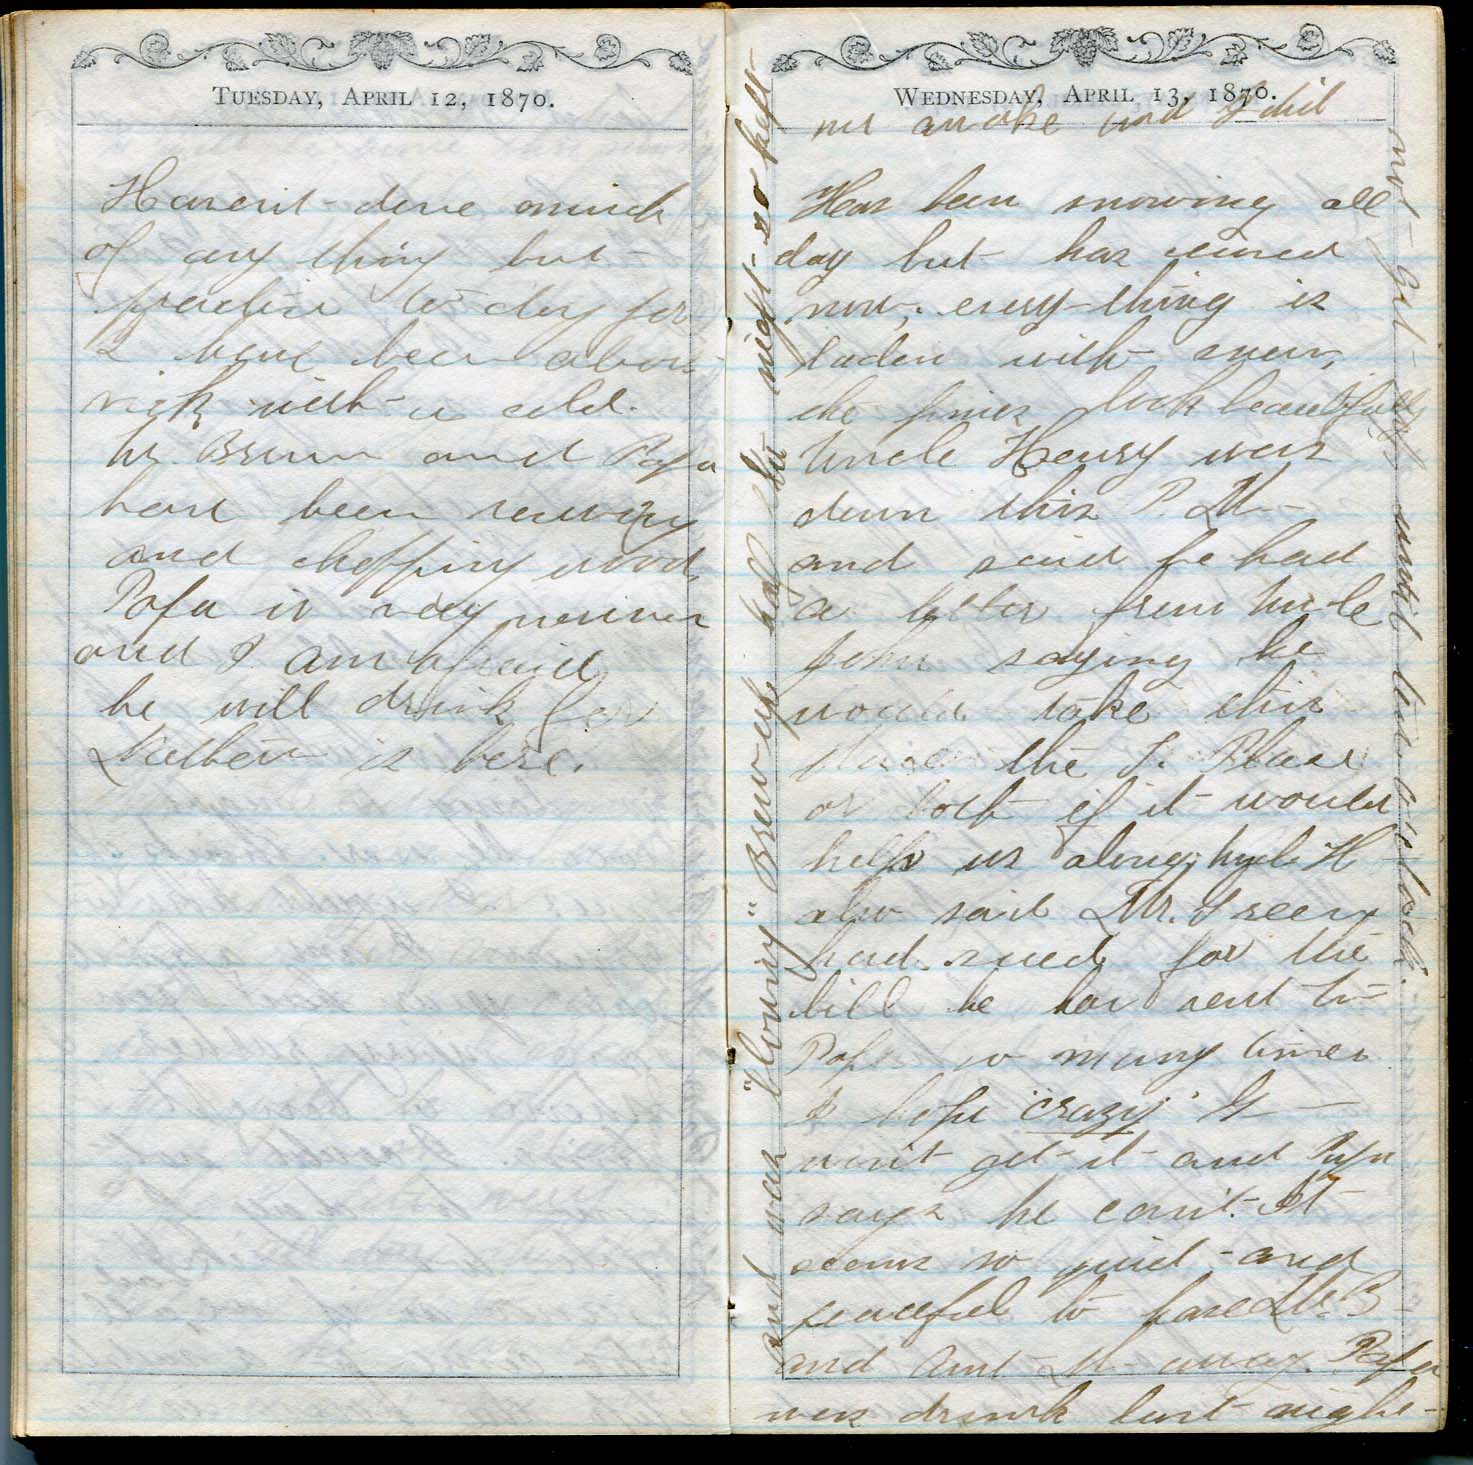 TUESDAY, APRIL 12, 1870.
Havent done much
of any thing but
practice to day for
I have been about
sick with a cold.
Mr Brown and Papa
have been sawing
and chopping wood,
Papa is very nervous
and I am afraid
he will drink for
is here.
WEDNESDAY, APRIL 13, 1870.
Has been snowing all
day but has ceased
now, every-thing is
laden with snow,
the pines look beautifully
Uncle Henry was
down this P. M.
and said he had
a letter from Uncle
John saying he
would take this
place the J. Place
or both if it would
help us along, Uncle H
also said Mr. Greery
had sued for the
bill he has sent to
Papa so many times
I hope "crazy" G
wont get it and Papa
says he cant. It
seems so quiet and
peaceful to have Mr. B
and Aunt M away. Papa
was drunk last night
and was "loving" Brown up half the night so kept
me awake and I did
not get up until late o'clock.